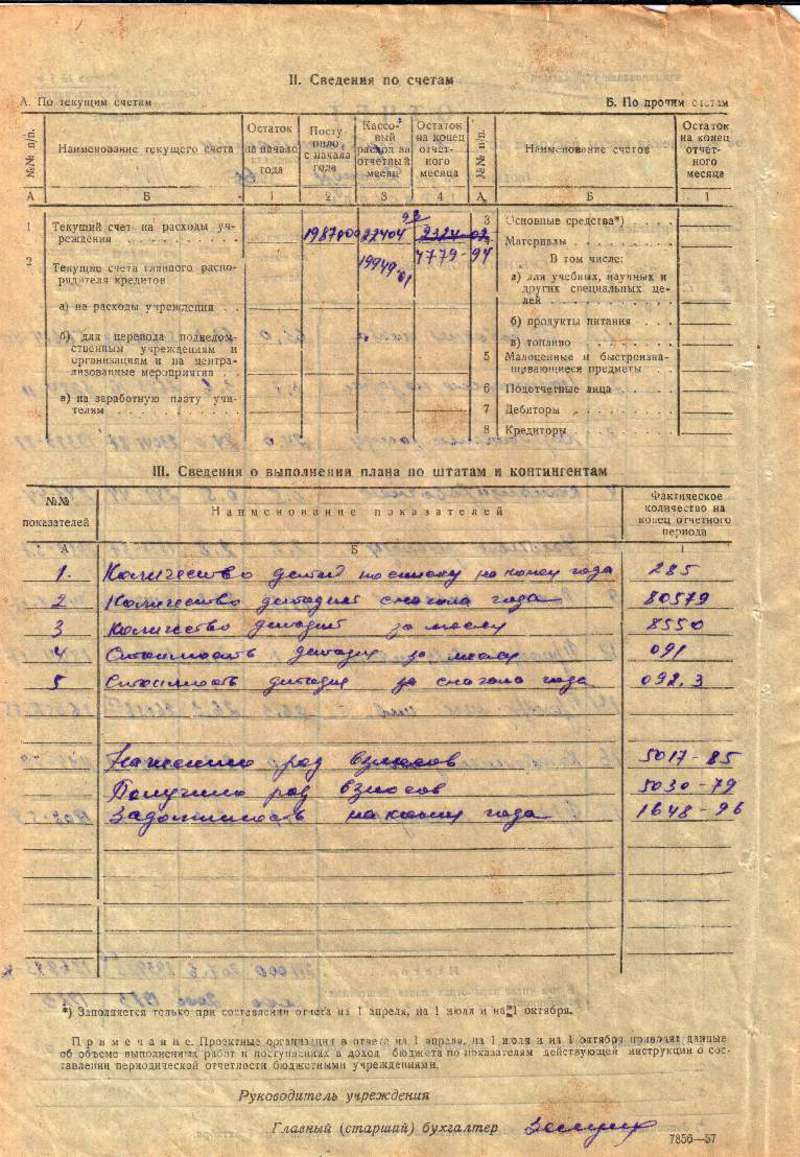 II. Сведения по счетам
А. По текущим счетам
Б. По прочим счетам
№№ п/п.
Наименование текущего счета
Остаток на начало года
Поступило с начала года
Кассовый расход за отчетный месяц
Остаток на конец отчетного месяца
№№ п/п.
Наименование счетов
Остаток на конец отчетного месяца
А Б 1 2 3 4 А Б 1
1 Текущий счет на расходы уч-
реждения 198700 22404 93 2324-02
2 Текущие счета главного распо-
рядителя кредитов 19949 01 4779-94
а) на расходы учреждения
б) для перевода подведом-
ственным учреждениям и
организациям и на центра-
лизованные мероприятия
в) на заработную плату учи-
телям
3 Основные средства*)
Материалы
В том числе:
а) для учебных, научных и
других специальных це-
лей
б) продукты питания
в) топливо
5 Малоценные и быстроизна-
шивающиеся предметы
6 Подотчетные лица
7 Дебиторы
8 Кредиторы
III. Сведения о выполнении плана по штатам и контингентам
№№ показателей
Наименование показателей
Фактическое количество на конец отчетного периода
А Б 1
1. Количество детей по списку на конец года 285
2 Количество детодней с начала года 80579
3 Количество детодней за месяц 8550
4 Стоимость детодня за месяц 091
5 Стоимость детодня за с начала года 092.3
Начислено род взносов 5017-85
Получено род взносов 5030-79
Задолжность на конец года 1648-96
*) Заполняется только при составлении отчета на 1 апреля, на 1 июля и на 1 октября.
Примечание. Проектные организации в отчете на 1 апреля, на 1 июля и на 1 октября приводят данные
об объеме выполненных работ и поступлениях в доход бюджета по показателям действующей инструкции о сос-
тавлении периодической отчетности бюджетными учреждениями.
Руководитель учреждения
Главный (старший) бухгалтер
7856—57